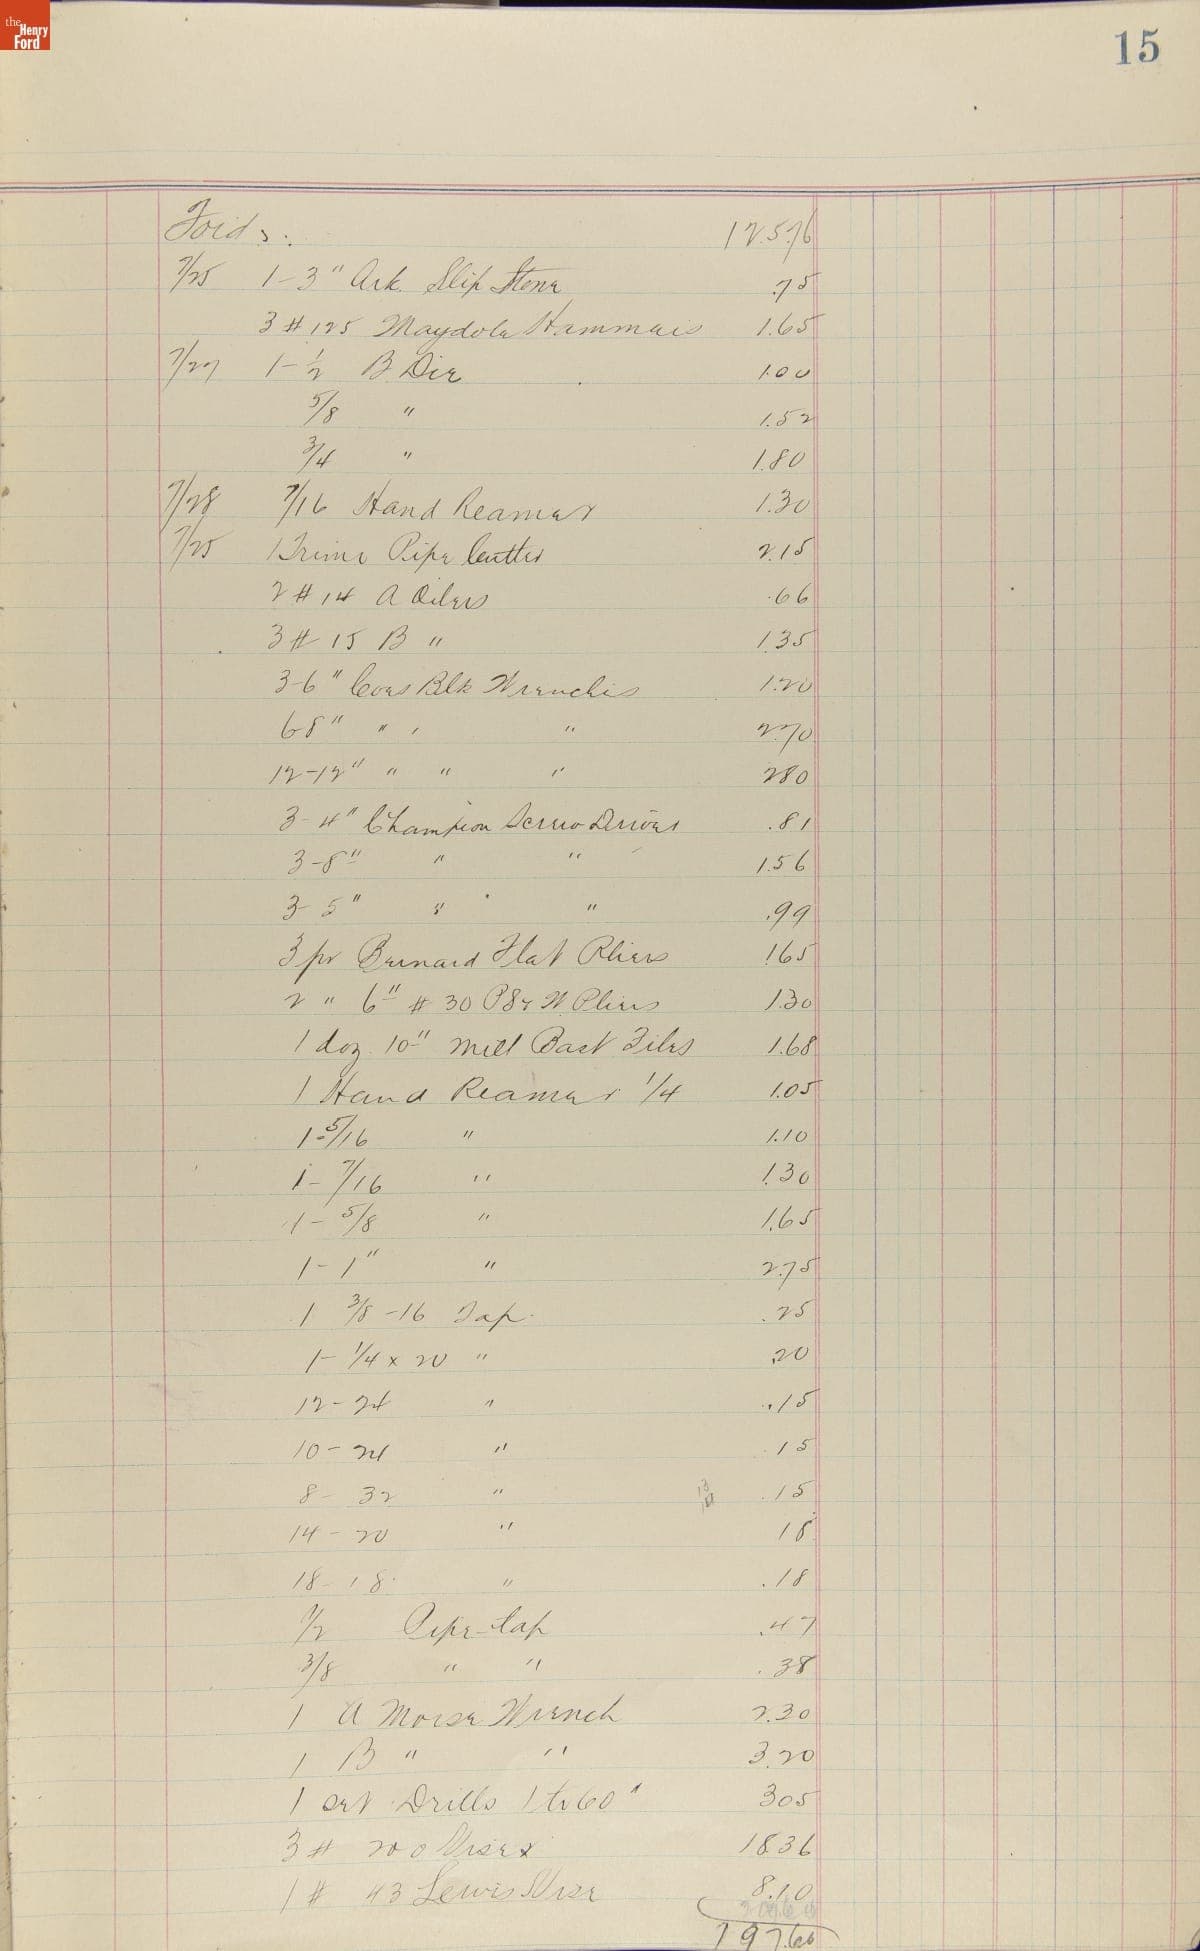 the Henry Ford
15
Ford's. 125.76
7/25 1-3" Ark. Slip Stone .75
3 # 125 Maydole Hammers 1.65
7/27 1- 1/2 B. Die 1.00
5/8 " 1.52
3/4 " 1.80
7/28 7/16 Hand Reamer 1.30
7/25 1 Trimo Pipe Cutter 2.15
2 # 14 A Oilers .66
3 # 15 B " 1.35
3-6" Coes Blk Wrenches 1.20
6-8" " " " 2.70
12-12" " " " 280
3-4" Champion Screw Driver .81
3-8" " " 1.56
3-5" " " .99
3 pr Bernard Flat Pliers 1.65
2 " 6" # 30 P & W. Pliers 1.30
1 doz. 10" Mill Bast Files 1.68
1 Hand Reamer 1/4 1.05
1-5/16 " 1.10
1- 7/16 " 1.30
1- 5/8 " 1.65
1- 1" " 2.75
1 3/8 -16 Tap. .25
1- 1/4 x 20 " .20
12-24 " .15
10-24 " 15
8- 32 " .15
14-20 " 18
18-18 " .18
1/2 Pipe-tap .47
3/8 " " .38
1 A Morse Wrench 2.30
1 B " " 3.20
1 set Drills 1 to 60" 305
3 # 200 Vises 1836
1 # 43 Lewis Vise 8.10
197.60